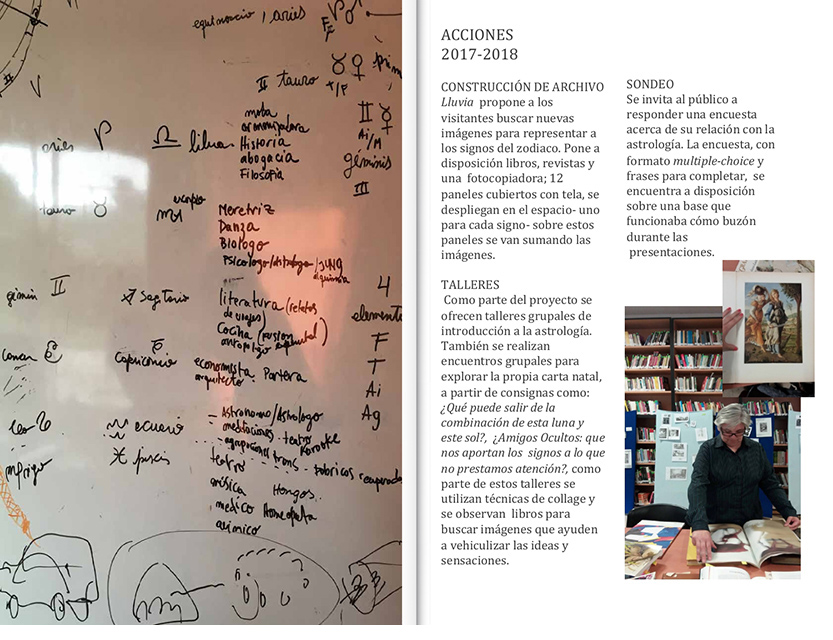 equinoccio / aries
II tauro ♉ ♀
♊ ☿
Ai/M
géminis
III
aries ♈ ♎ libra
Historia
abogacía
Filosofía
tauro ♉ ♏ escorpio
Meretriz
Danza
Biologo
Psicologo/astrologo/JUNG
alquimia
♊ ♐ Sagitario
literatura (relatos
de viajes)
Cocina
4
elementos
F
T
Ai
Ag
Capricornio
economista. Partera
arquitecto
leo ♌ ♒ acuario
- Astronomo/Astrologo
meditaciones - teatro
Karaoke
♓ piscis
teatro
música Hongos.
medico Homeopata
quimico
ACCIONES
2017-2018
CONSTRUCCIÓN DE ARCHIVO
Lluvia propone a los
visitantes buscar nuevas
imágenes para representar a
los signos del zodiaco. Pone a
disposición libros, revistas y
una fotocopiadora; 12
paneles cubiertos con tela, se
despliegan en el espacio- uno
para cada signo- sobre estos
paneles se van sumando las
imágenes.
TALLERES
Como parte del proyecto se
ofrecen talleres grupales de
introducción a la astrología.
También se realizan
encuentros grupales para
explorar la propia carta natal,
a partir de consignas como:
¿Qué puede salir de la
combinación de esta luna y
este sol?, ¿Amigos Ocultos: que
nos aportan los signos a lo que
no prestamos atención?, como
parte de estos talleres se
utilizan técnicas de collage y
se observan libros para
buscar imágenes que ayuden
a vehiculizar las ideas y
sensaciones.
SONDEO
Se invita al público a
responder una encuesta
acerca de su relación con la
astrología. La encuesta, con
formato multiple-choice y
frases para completar, se
encuentra a disposición
sobre una base que
funcionaba cómo buzón
durante las
presentaciones.